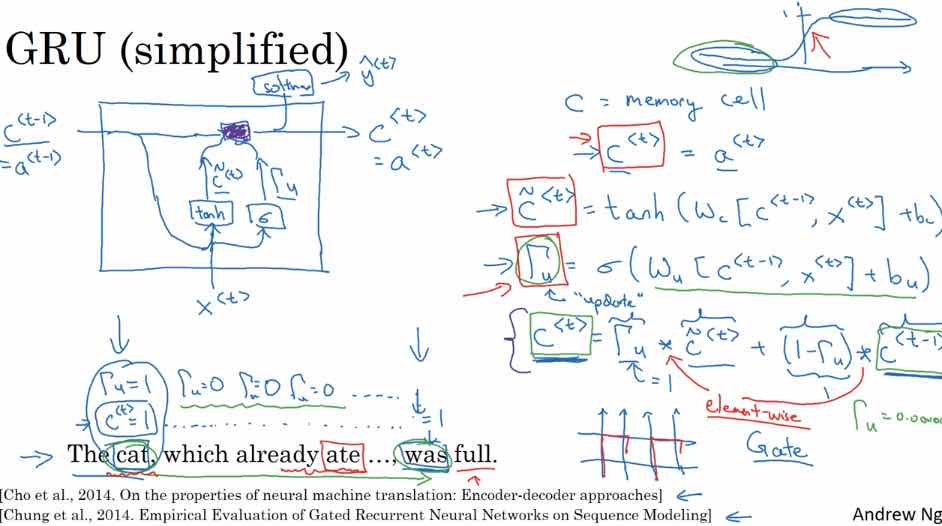 GRU (simplified)
softmax → ŷ<t>
c<t-1> = a<t-1>
c̃<t>
Γu
tanh
σ
c<t> = a<t>
x<t>
1
C = memory cell
→ c<t> = a<t>
→ c̃<t> = tanh (Wc [c<t-1>, x<t>] + bc)
→ Γu = σ (Wu [c<t-1>, x<t>] + bu)
"update"
c<t> = Γu * c̃<t> + (1-Γu) * c<t-1>
= 1
1
element-wise
Gate
Γu = 0.0000
Γu = 1 Γu=0 Γu=0 Γu=0 .....
c<t> = 1 ............ = 1
→ The cat, which already ate ..., was full.
[Cho et al., 2014. On the properties of neural machine translation: Encoder-decoder approaches] ←
[Chung et al., 2014. Empirical Evaluation of Gated Recurrent Neural Networks on Sequence Modeling] ←
Andrew Ng